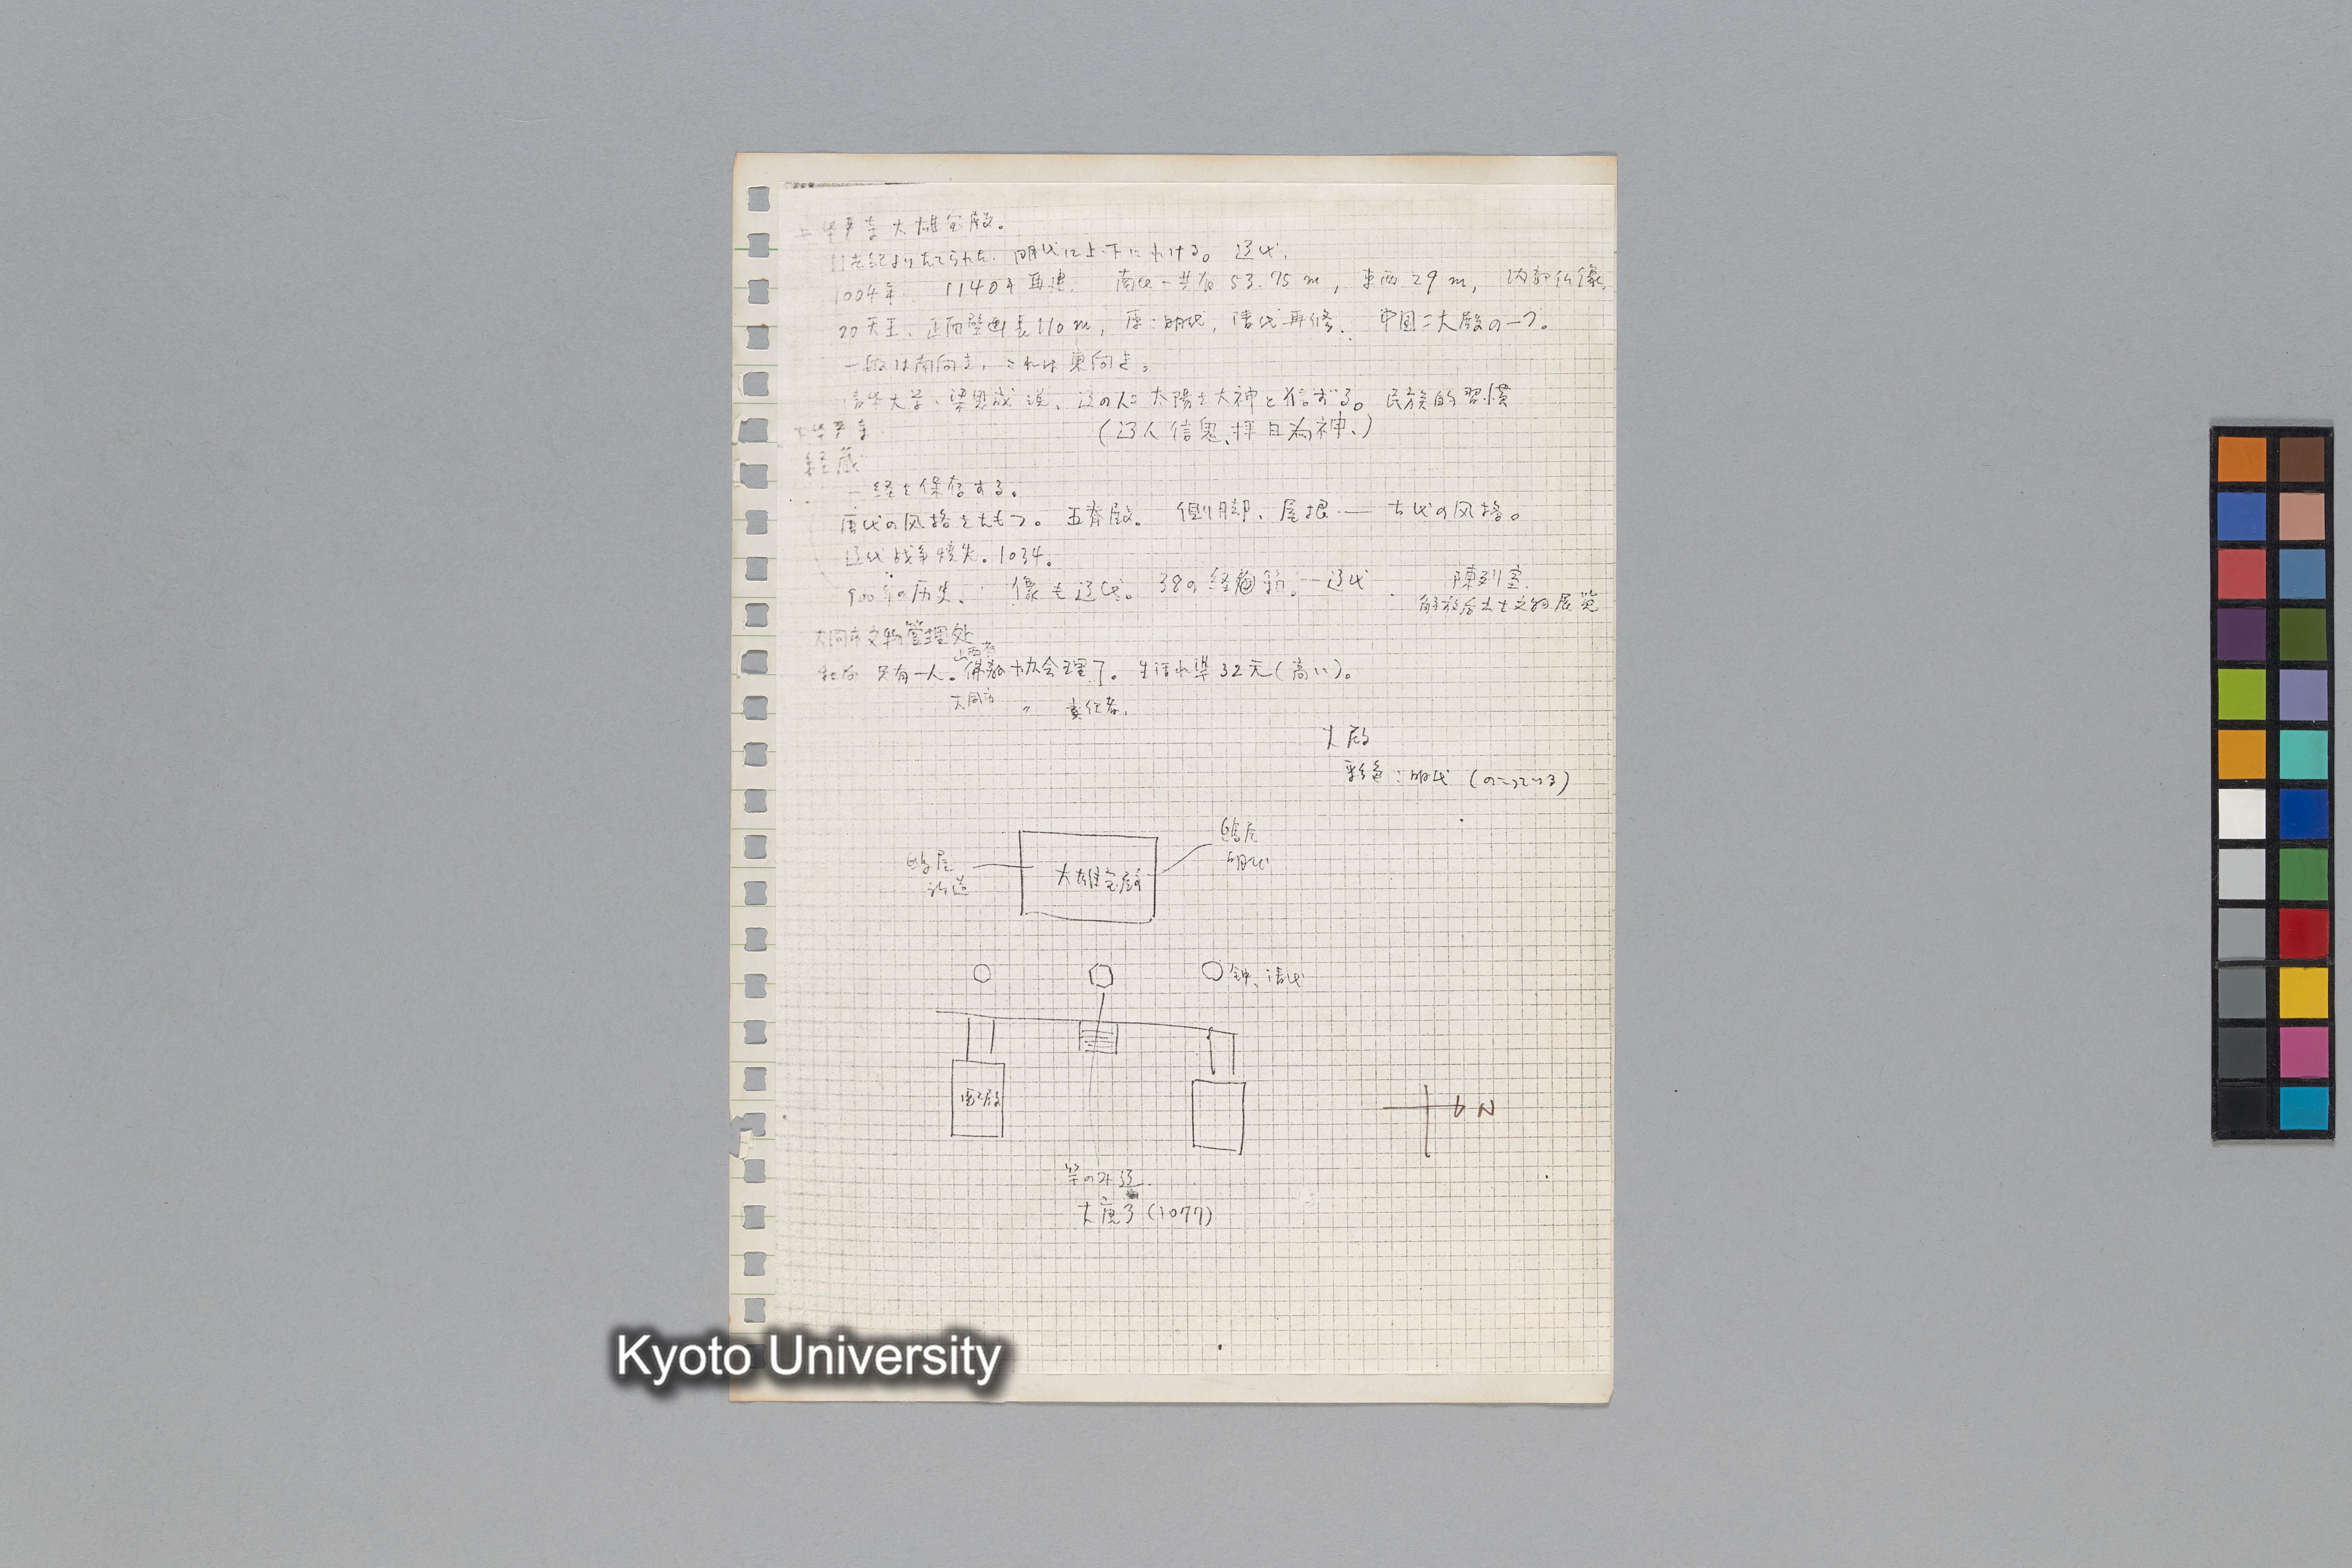 上华严寺大雄宝殿。
11世紀よりたてられた. 明代に上下にわける。 辽代.
1004年. 1140年再建. 南北-共有53.75m, 東西29m, 内部仏像.
20天王. 正面壁画長110m, 原:明代, 清代再修. 中国二大殿の一つ。
一般は南向き, これは東向き。
清华大学、梁思成説、辽の人は太陽を大神と信ずる。民族的習慣
(辽人信鬼、拝日為神、)
下华严寺
経蔵
経を保存する。
唐代の风格をたもつ。五脊殿。側脚、屋根 — 古代の风格。
辽代战争焼失。1034.
900年の历史. 像も辽代。38の経 辽代. 陳列室.
解放后出土文物展览
大同市文物管理处
山西省
只有一人。佛教协会理了。生活水準32元(高い)。
大同市 〃 責任者.
大殿
彩色:明代 (のこっている)
鴟尾
明代
鴟尾
大雄宝殿
鈡、清代
配殿
N
(1077)
Kyoto University